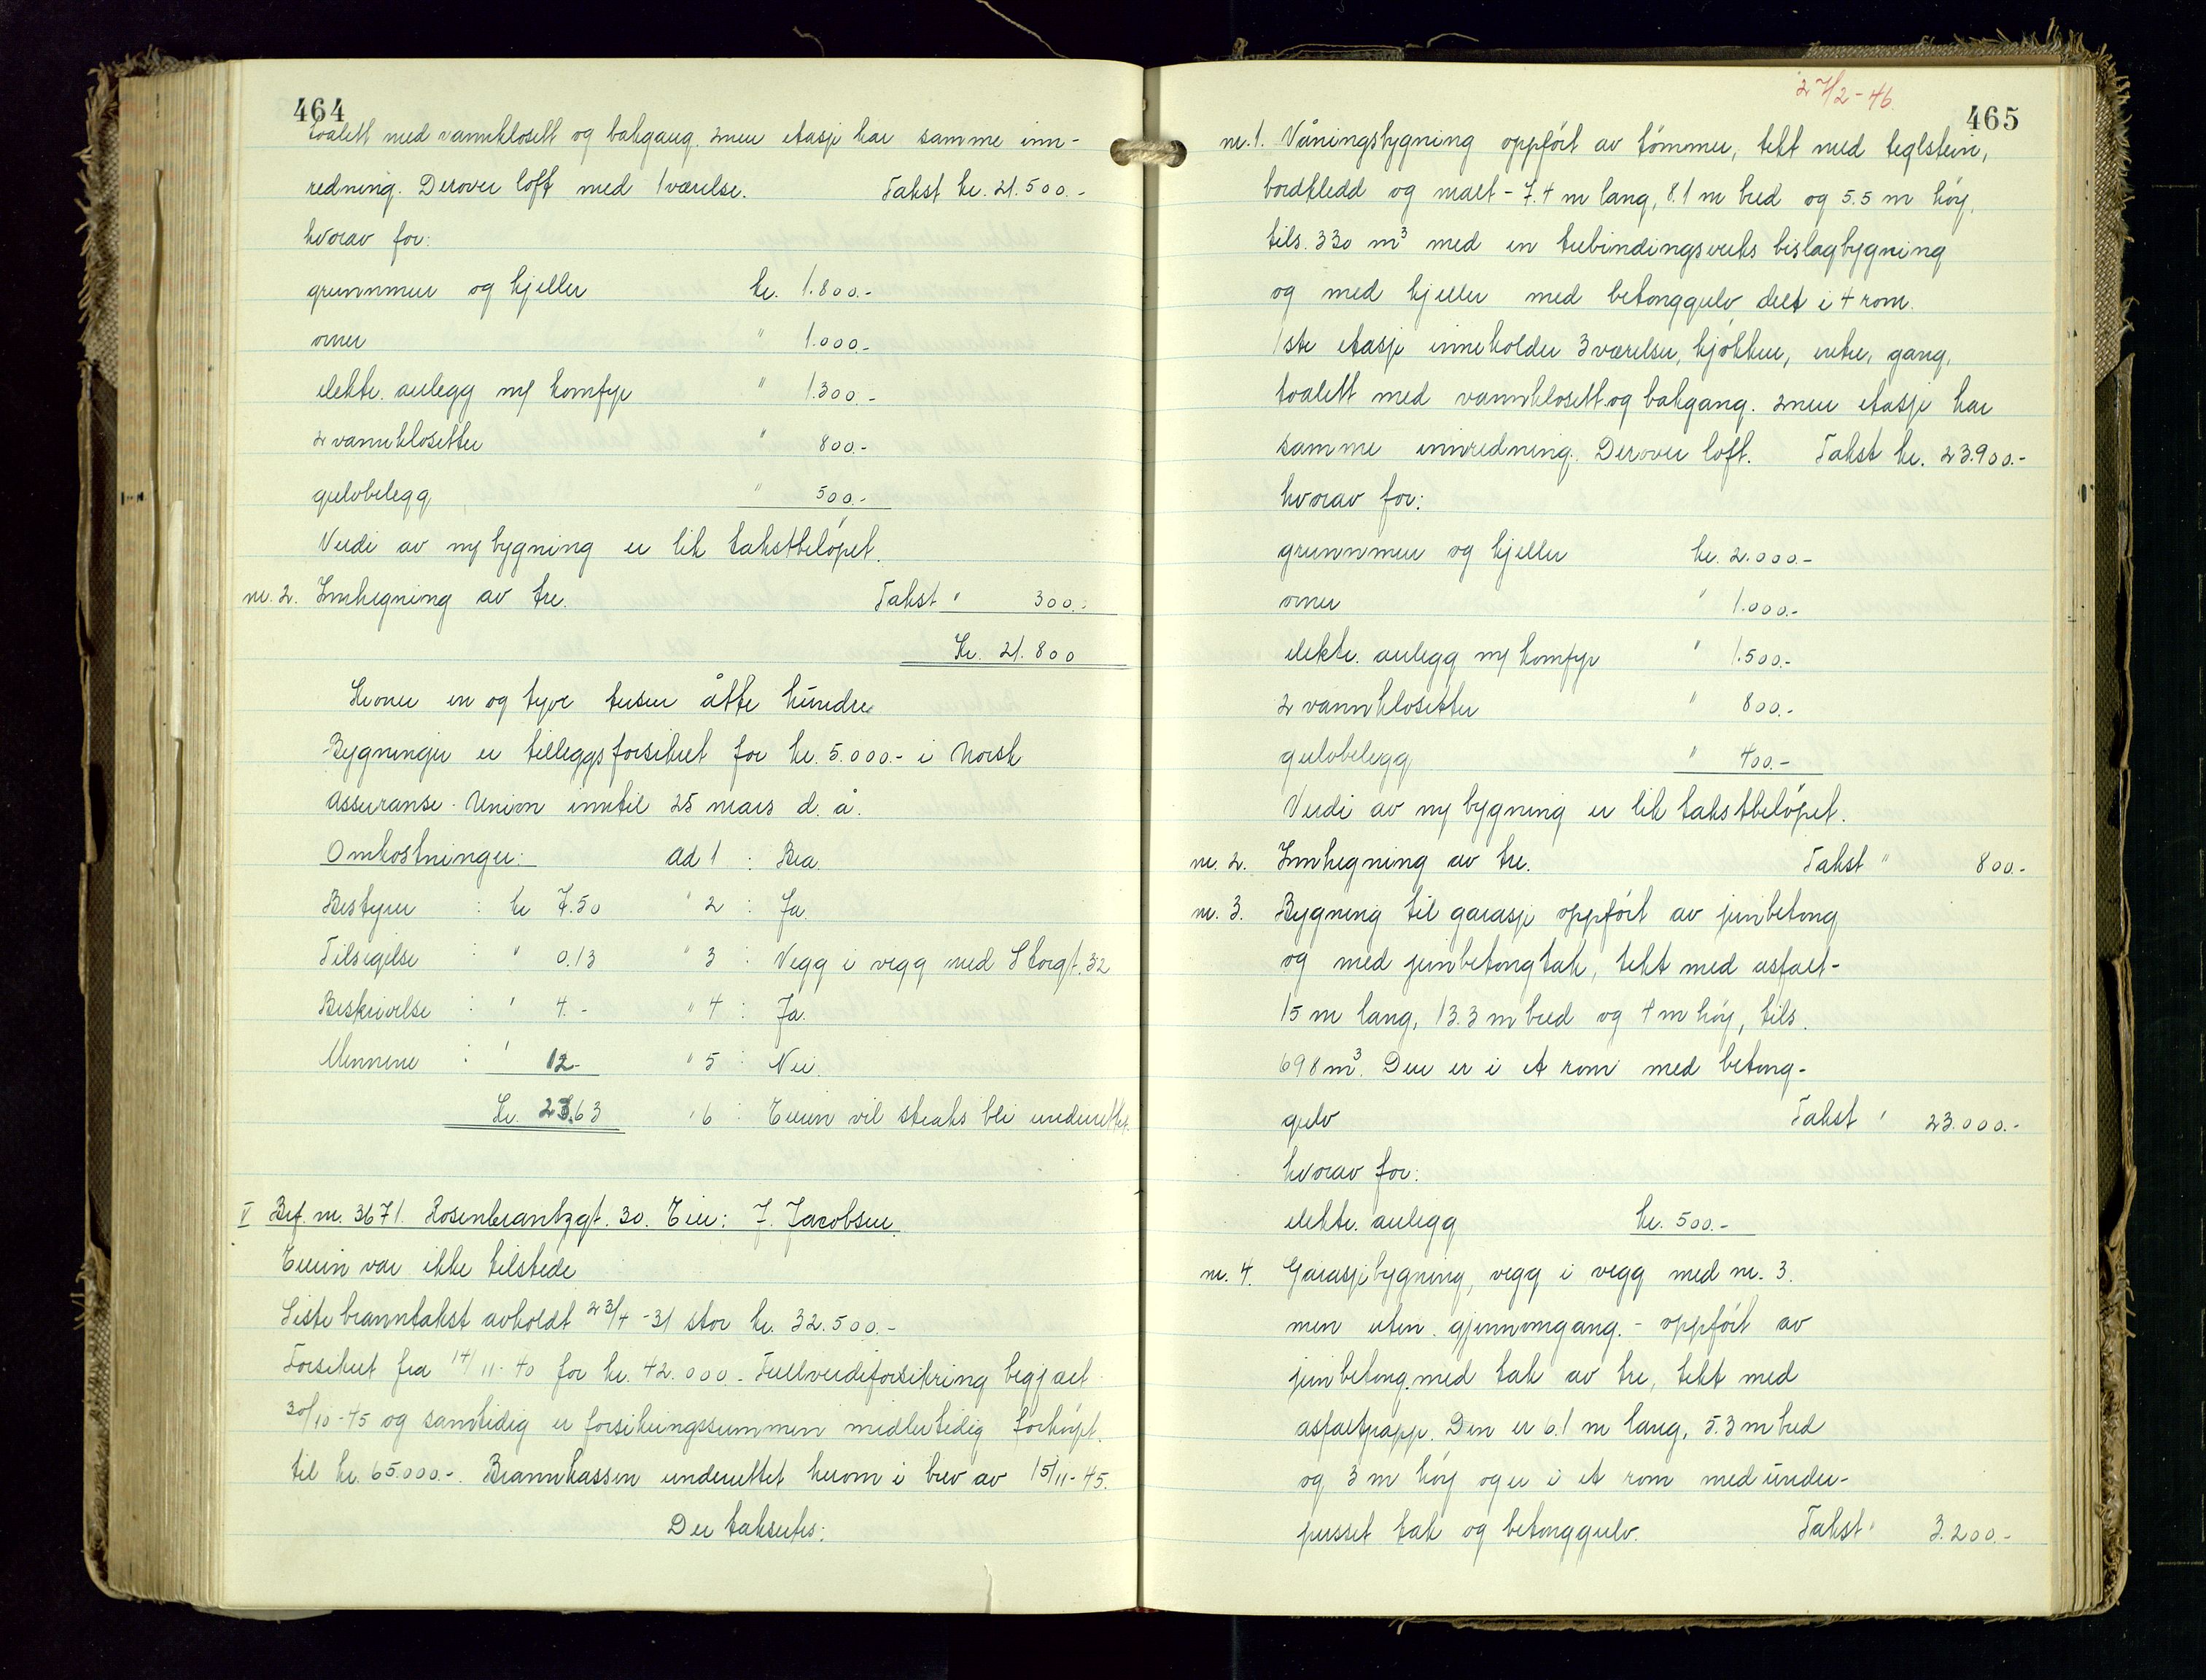 464
toalett med vannklosett og bakgang. 2nen etasje har samme inn-
redning. Derover loft med 1 værelse. Takst kr. 21.500.-
hvorav for:
grunnmur og kjeller kr. 1.800.-
ovner " 1.000.-
elektr. anlegg m/ komfyr " 1.300.-
2 vannklosetter " 800.-
gulvbelegg " 500.-
Verdi av ny bygning er lik takstbeløpet.
nr. 2. Innhegning av tre. Takst " 300.-
Kr. 21.800
Kroner en og tyve tusen åtte hundre
Bygninger er tilleggsforsikret for kr. 5.000.- i Norsk
Assuranse-Union inntil 25 mars d. å.
Omkostninger: ad 1 : Bra.
Bestyrer : kr 7.50 " 2 : Ja.
Tilsigelse : " 0.13 " 3 : Vegg i vegg med Storgt. 32
Beskrivelse : " 4.- " 4 : Ja.
Mennene : " 12.- " 5 : Nei.
Kr. 23.63 " 6 : Eieren vil straks bli underrettet.
V Bef. nr. 3671. Rosenkrantzgt. 30. Eier: J. Jacobsen.
Eieren var ikke tilstede
Siste branntakst avholdt 23/4-31 stor kr. 32.500.-
Forsikret fra 14/11-40 for kr. 42.000.- Fullverdiforsikring begjært
30/10-45 og samtidig er forsikringssummen midlertidig forhöyet
til kr. 65.000.-. Brannkassen underrettet herom i brev av 15/11-45.
Der takseres:
27/2-46.
465
nr. 1. Våningsbygning oppfört av tömmer, tekt med teglstein,
bordkledd og malt - 7.4 m lang, 8.1 m bred og 5.5 m höy,
tils. 330 m³ med en trebindingsverks bislagbygning
og med kjeller med betonggulv delt i 4 rom.
1ste etasje inneholder 3 værelser, kjökken, entre, gang,
toalett med vannklosett og bakgang. 2nen etasje har
samme innredning. Derover loft. Takst kr. 23.900.-
hvorav for:
grunnmur og kjeller kr. 2.000.-
ovner " 1.000.-
elektr. anlegg m/ komfyr " 1.500.-
2 vannklosetter " 800.-
gulvbelegg " 400.-
Verdi av ny bygning er lik takstbelöpet.
nr. 2. Innhegning av tre. Takst " 800.-
nr. 3. Bygning til garasje oppfört av jernbetong
og med jernbetongtak, tekt med asfalt-
15 m lang, 13.3 m bred og 4 m höy, tils.
698 m³. Den er i et rom med betong-
gulv Takst " 23.000.-
hvorav for:
elektr. anlegg kr. 500.-
nr. 4. Garasjebygning, vegg i vegg med nr. 3.
men uten gjennemgang. - oppfört av
jernbetong med tak av tre, tekt med
asfaltpapp. Den er 6.1 m lang, 5.3 m bred
og 3 m höy og er i et rom med under-
pusset tak og betonggulv. Takst " 3.200.-